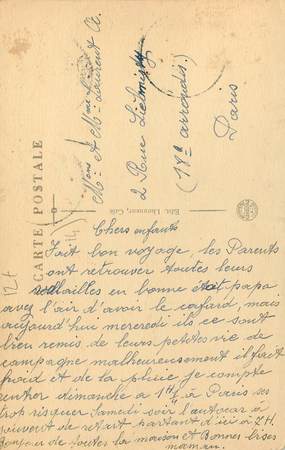 CARTE POSTALE
Mons et Mme Laurent A.
2 Rue
(18e arrondis.)
Paris
Chers enfants
Fait bon voyage, les Parents
ont retrouver toutes leurs
en bonne état papa
avez l'air d'avoir le cafard, mais
aujourd'hui mercredi ils ce sont
bien remis de leurs petites vie de
campagne malheureusement il fait
froid et de la pluie je compte
rentrer dimanche à à Paris ses
trop risquer Samedi soir l'autocar a
souvent de retart partant d'ici à 7H.
Bonjour de toutes la maison et Bonnes bises
maman.